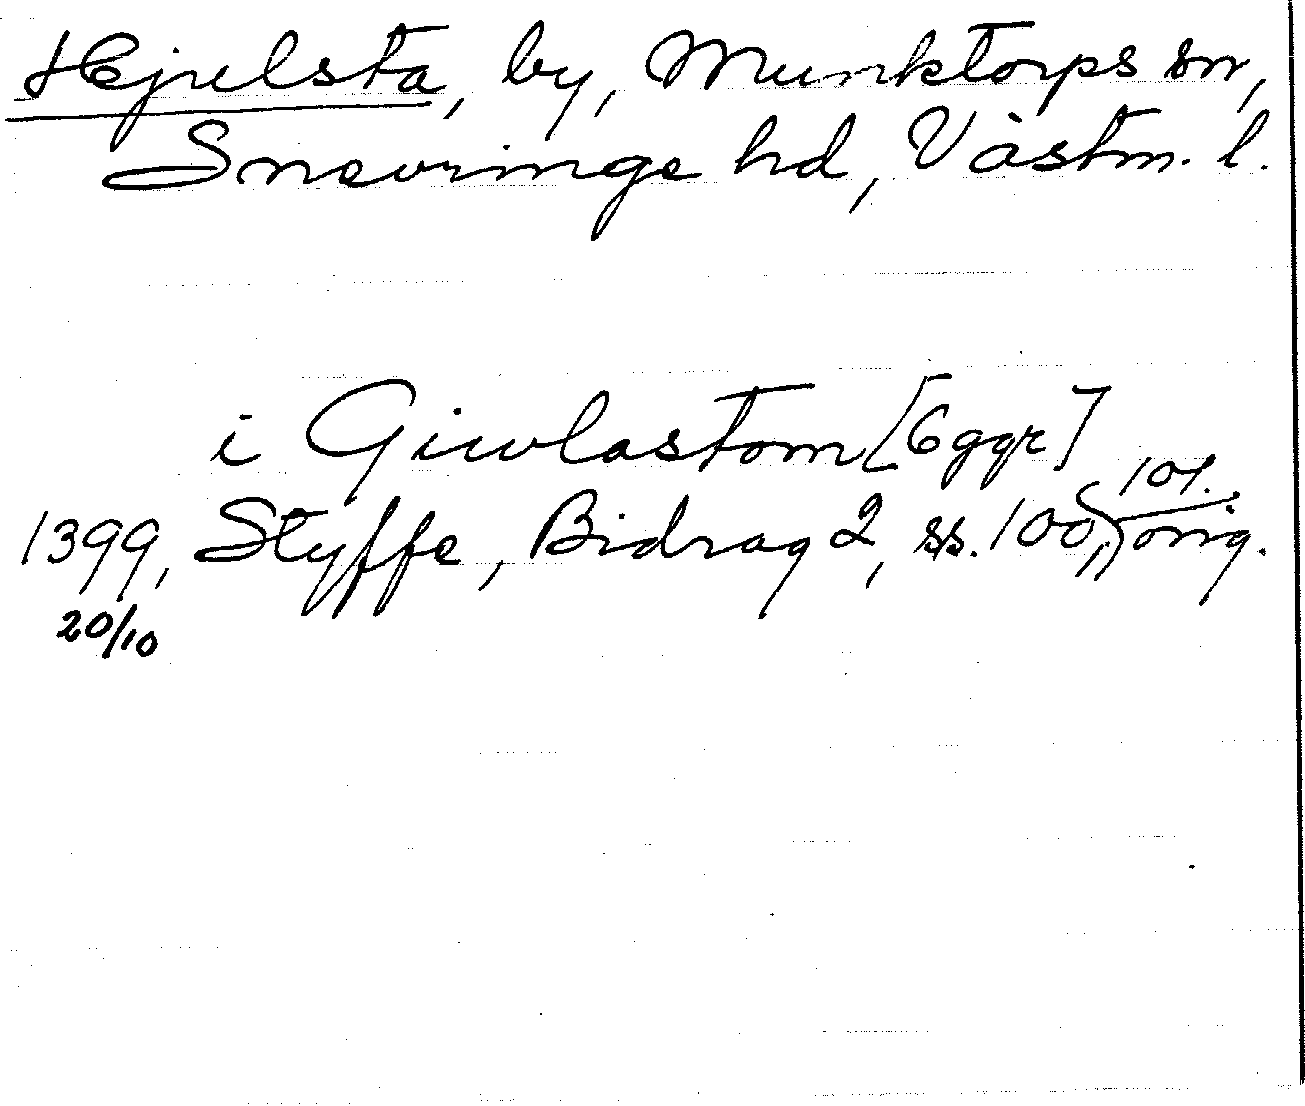 Hjulsta, by, Munktorps sn,
Snevringe hd, Västm. l.
i Giwlastom [6 ggr]
101.
1399, Styffe, Bidrag 2, ss. 100, orig.
20/10